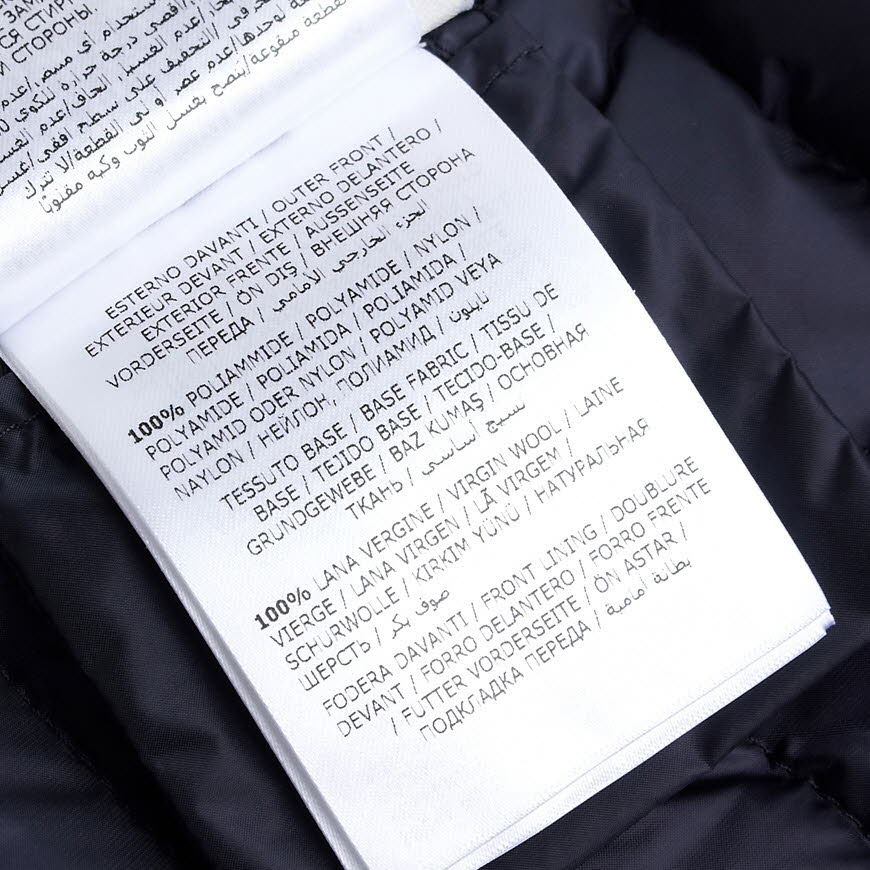 ЗАМА
СЯ СТИР
Й СТОРОНЫ.
ESTERNO DAVANTI / OUTER FRONT /
EXTERIEUR DEVANT / EXTERNO DELANTERO /
EXTERIOR FRENTE / AUSSENSEITE
VORDERSEITE / ÖN DIŞ / ВНЕШНЯЯ СТОРОНА
ПЕРЕДА / الجزء الخارجي الأمامي
100% POLIAMMIDE / POLYAMIDE / NYLON /
POLYAMIDE / POLIAMIDA / POLIAMIDA /
POLYAMID ODER NYLON / POLYAMID VEYA
NAYLON / НЕЙЛОН, ПОЛИАМИД / نايلون
TESSUTO BASE / BASE FABRIC / TISSU DE
BASE / TEJIDO BASE / TECIDO-BASE /
GRUNDGEWEBE / BAZ KUMAŞ / ОСНОВНАЯ
ТКАНЬ / نسيج أساسي
100% LANA VERGINE / VIRGIN WOOL / LAINE
VIERGE / LANA VIRGEN / LÃ VIRGEM /
SCHURWOLLE / KIRKIM YÜNÜ / НАТУРАЛЬНАЯ
ШЕРСТЬ / صوف بكر
FODERA DAVANTI / FRONT LINING / DOUBLURE
DEVANT / FORRO DELANTERO / FORRO FRENTE
/ FUTTER VORDERSEITE / ÖN ASTAR /
ПОДКЛАДКА ПЕРЕДА / بطانة أمامية